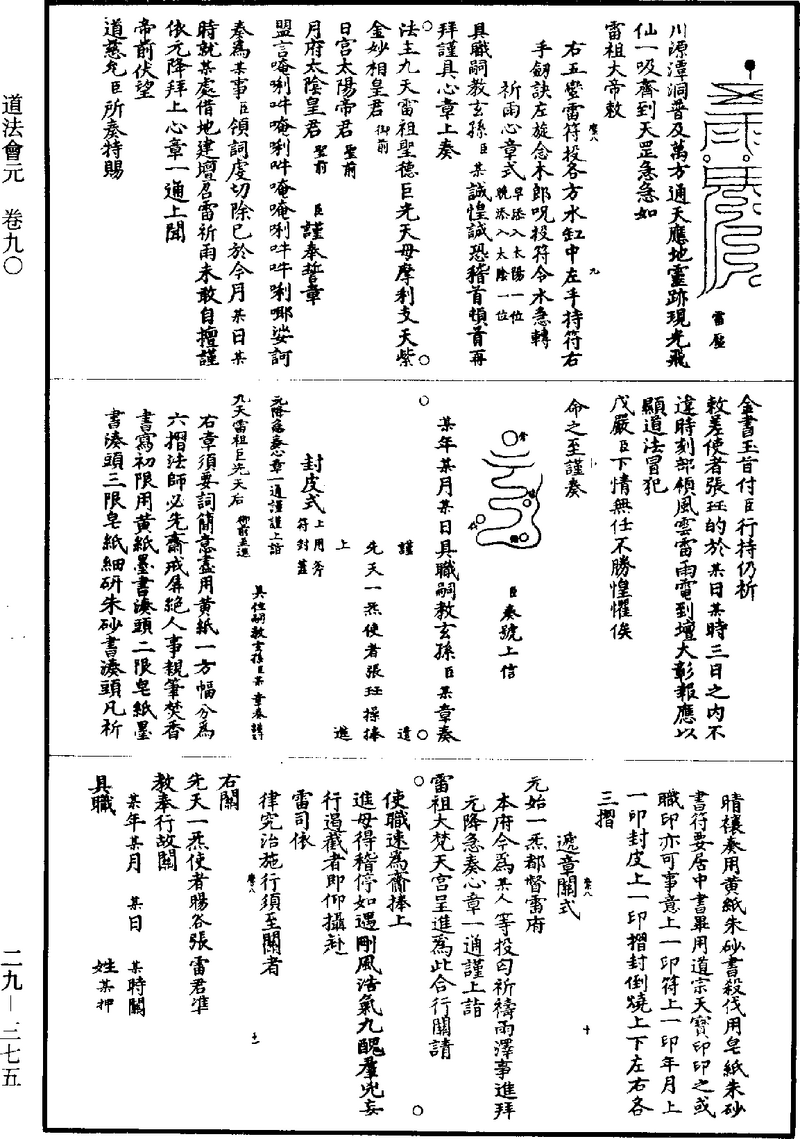 道法會元　卷九〇
二九—三七五
雷壓
川源潭洞普及萬方通天應地靈跡現光飛
仙一吸齊到天罡急急如
雷祖大帝敕
右五壓雷符投各方水缸中左手持符右
手劒訣左旋念木郎呪投符令水急轉
祈雨心章式旱添入太陽一位晚添入太陰一位
具職嗣教玄孫臣某誠惶誠恐稽首頓首再
拜謹具心章上奏
法主九天雷祖聖德巨光天母摩利支天紫
金妙相皇君御前
日宮太陽帝君聖前
月府太陰皇君聖前　臣謹奉誓章
盟言唵唎吽唵唎吽唵唵唎吽吽唎唧娑訶
奏為某事臣領詞虔切除已於今月某日某
時就某處借地建壇召雷祈雨未敢自擅謹
依元降拜上心章一通上聞
帝前伏望
道慈允臣所奏特賜
金書玉旨付臣行持仍祈
敕差使者張珏的於某日某時三日之內不
違時刻部領風雲雷雨電到壇大彰報應以
顯道法冒犯
戊嚴臣下情無任不勝惶懼俟
命之至謹奏
臣奏號上信
某年某月某日具職嗣教玄孫臣某章奏
謹　遣
先天一炁使者張珏操捧
上　進
封皮式上用斧符封蓋
元降急奏心章一通謹謹上詣
九天雷祖巨光天后御前上進
具位嗣教玄孫臣某章奏謹封
右章須要詞簡意盡用黃紙一方幅分為
六摺法師必先齋戒屏絕人事親筆焚香
書寫初限用黃紙墨書湊頭二限皂紙墨
書湊頭三限皂紙細研朱砂書湊頭凡祈
晴禳奏用黃紙朱砂書殺伐用皂紙朱砂
書符要居中書畢用道宗天寶印印之或
職印亦可事意上一印符上一印年月上
一印封皮上一印摺封倒燒上下左右各
三摺
遞章關式
元始一炁都督雷府
本府今為某人等投匃祈禱雨澤事進拜
元降急奏心章一通謹上詣
雷祖大梵天宮呈進為此合行關請
使職速為齎捧上
進毋得稽停如遇剛風浩氣九醜羣兇妄
行遏截者即仰攝赴
雷司依
律究治施行須至關者
右關
先天一炁使者暘谷張雷君準
教奉行故關
某年某月　某日　某時關
具職　姓某押